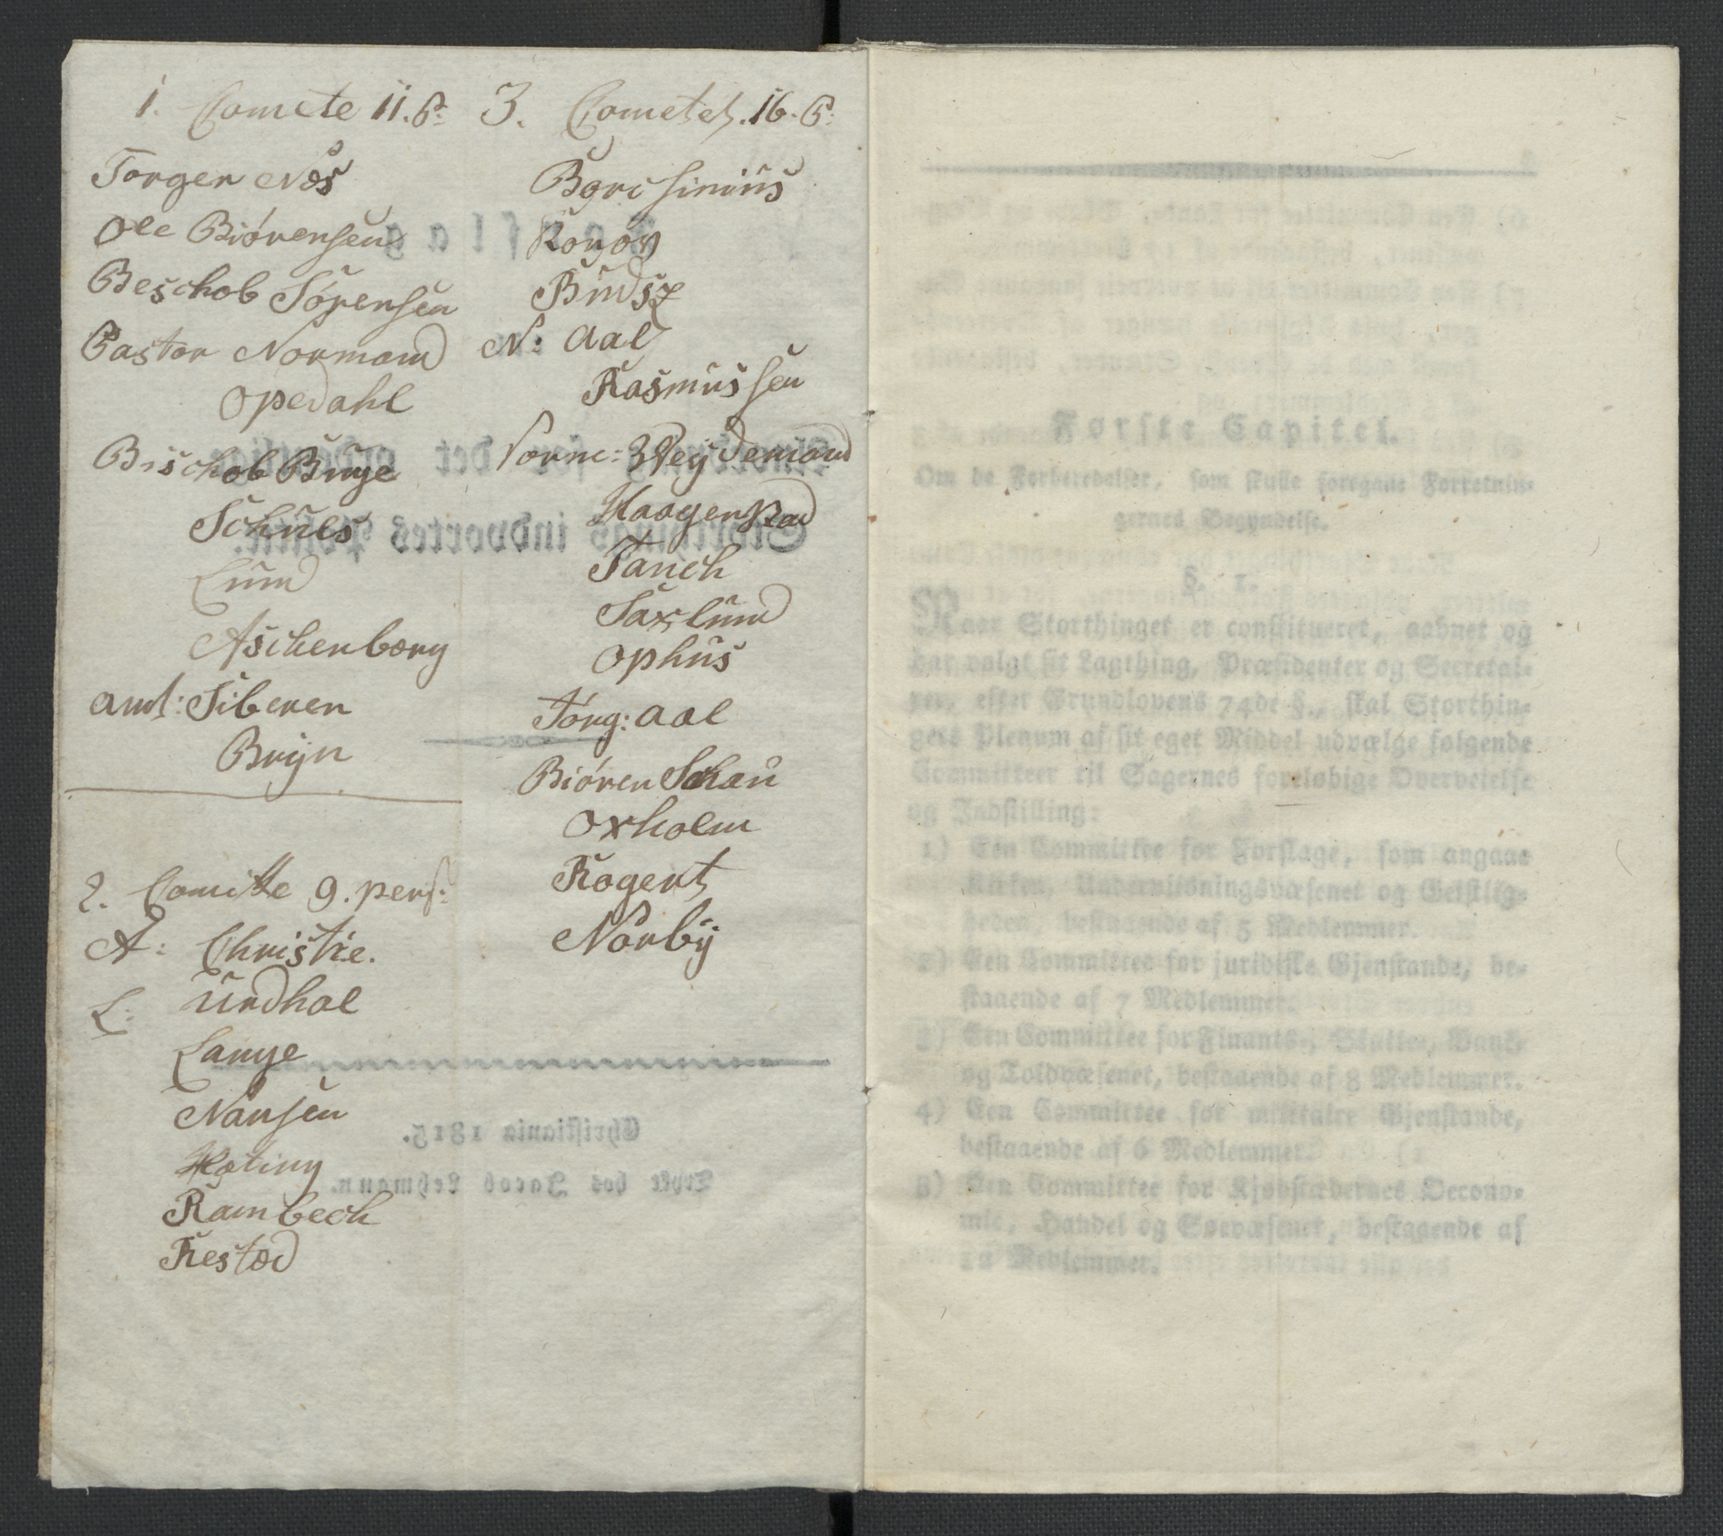 1. Comete 11. P:
Torger Næs
Ole Biørensen
Beschob Sørensen
Pastor Normand
Opedahl
Bischob Buge
Schues
Lund
Aschenborg
amt: Sibberen
Bryn
2. Comitte 9. pers:
A: Christie.
L: Urdhal
Lange
Nansen
Hæting
Rambech
Restad
3. Cometet. 16. P:
N: Aal
Rasmussen
Sorne: Weydemand
Haagenstad
Fauch
Saxlund
Ophus
Jørg: Aal
Biøren Schau
Oxholm
Rogert
Nørby
Første Capitel.
Om de Forberedelser, som skulle foregaae Forretnin-
gernes Begyndelse.
§. 1.
Naar Storthinget er constitueret, aabnet og
har valgt sit Lagthing, Præsidenter og Secretai-
rer, efter Grundlovens 74de §., skal Storthin-
gets Plenum af sit eget Middel udvælge følgende
Committeer til Sagernes foreløbige Overveielse
og Indstilling:
1) Een Committee for Forslage, som angaae
Kirken, Underviisningsvæsenet og Geistlig-
heden, bestaaende af 5 Medlemmer.
2) Een Committee for juridiske Gjenstande, be-
staaende af 7 Medlemmer.
3) Een Committee for Finants-, Skatte-, Bank-
og Toldvæsenet, bestaaende af 8 Medlemmer.
4) Een Committee for militaire Gjenstande,
bestaaende af 6 Medlemmer.
5) Een Committee for Kjøbstædernes Oecono-
mie, Handel og Søevæsenet, bestaaende af
Medlemmer.